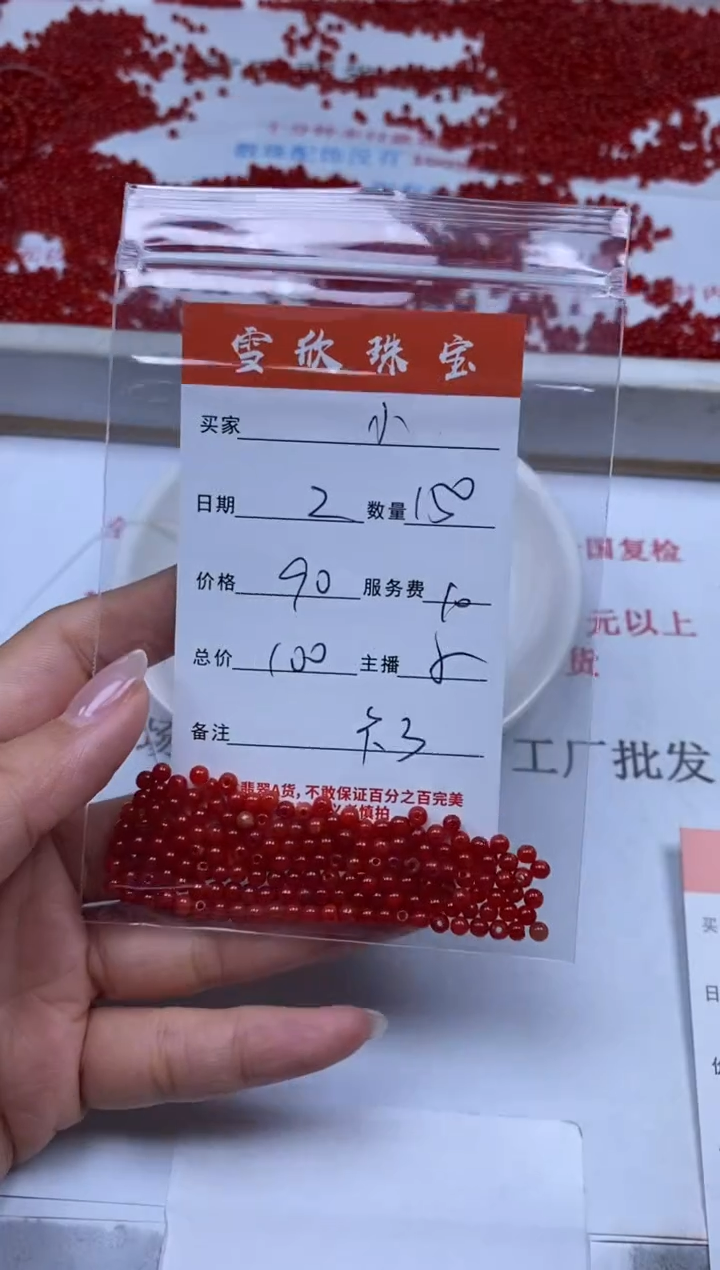 散珠配饰没有
雪欣珠宝
买家 小
日期 2 数量 150
价格 90 服务费 10
总价 100 主播
备注 卡3
翡翠A货,不敢保证百分之百完美
慎拍
国复检
元以上
货
工厂批发
买
日